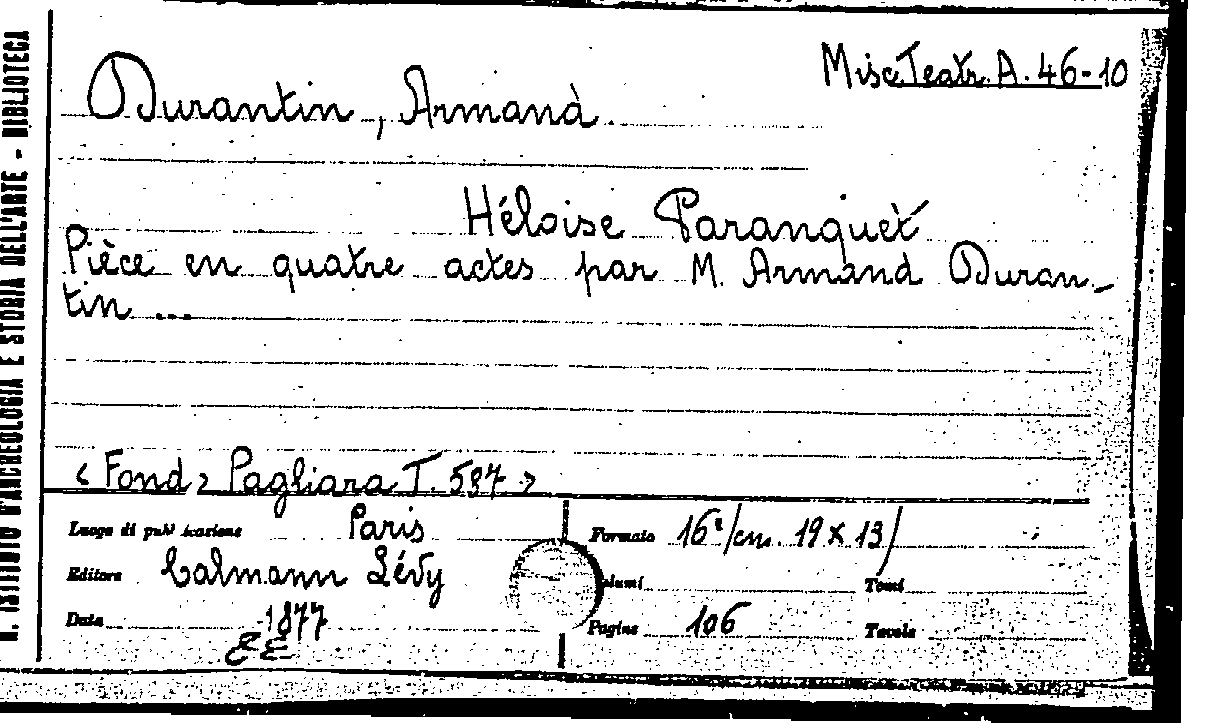 Misc. Teatr. A. 46-10
Durantin, Armand.
Héloise Paranquet
Pièce en quatre actes par M. Armand Duran-
tin ...
< Fond > Pagliara T. 597 >
Luogo di pubblicazione Paris
Formato 16°/cm. 19 x 13/
Editore Calmann Lévy
Volumi Tomi
Data 1877
Pagine 106 Tavole
R. ISTITUTO D'ARCHEOLOGIA E STORIA DELL'ARTE - BIBLIOTECA